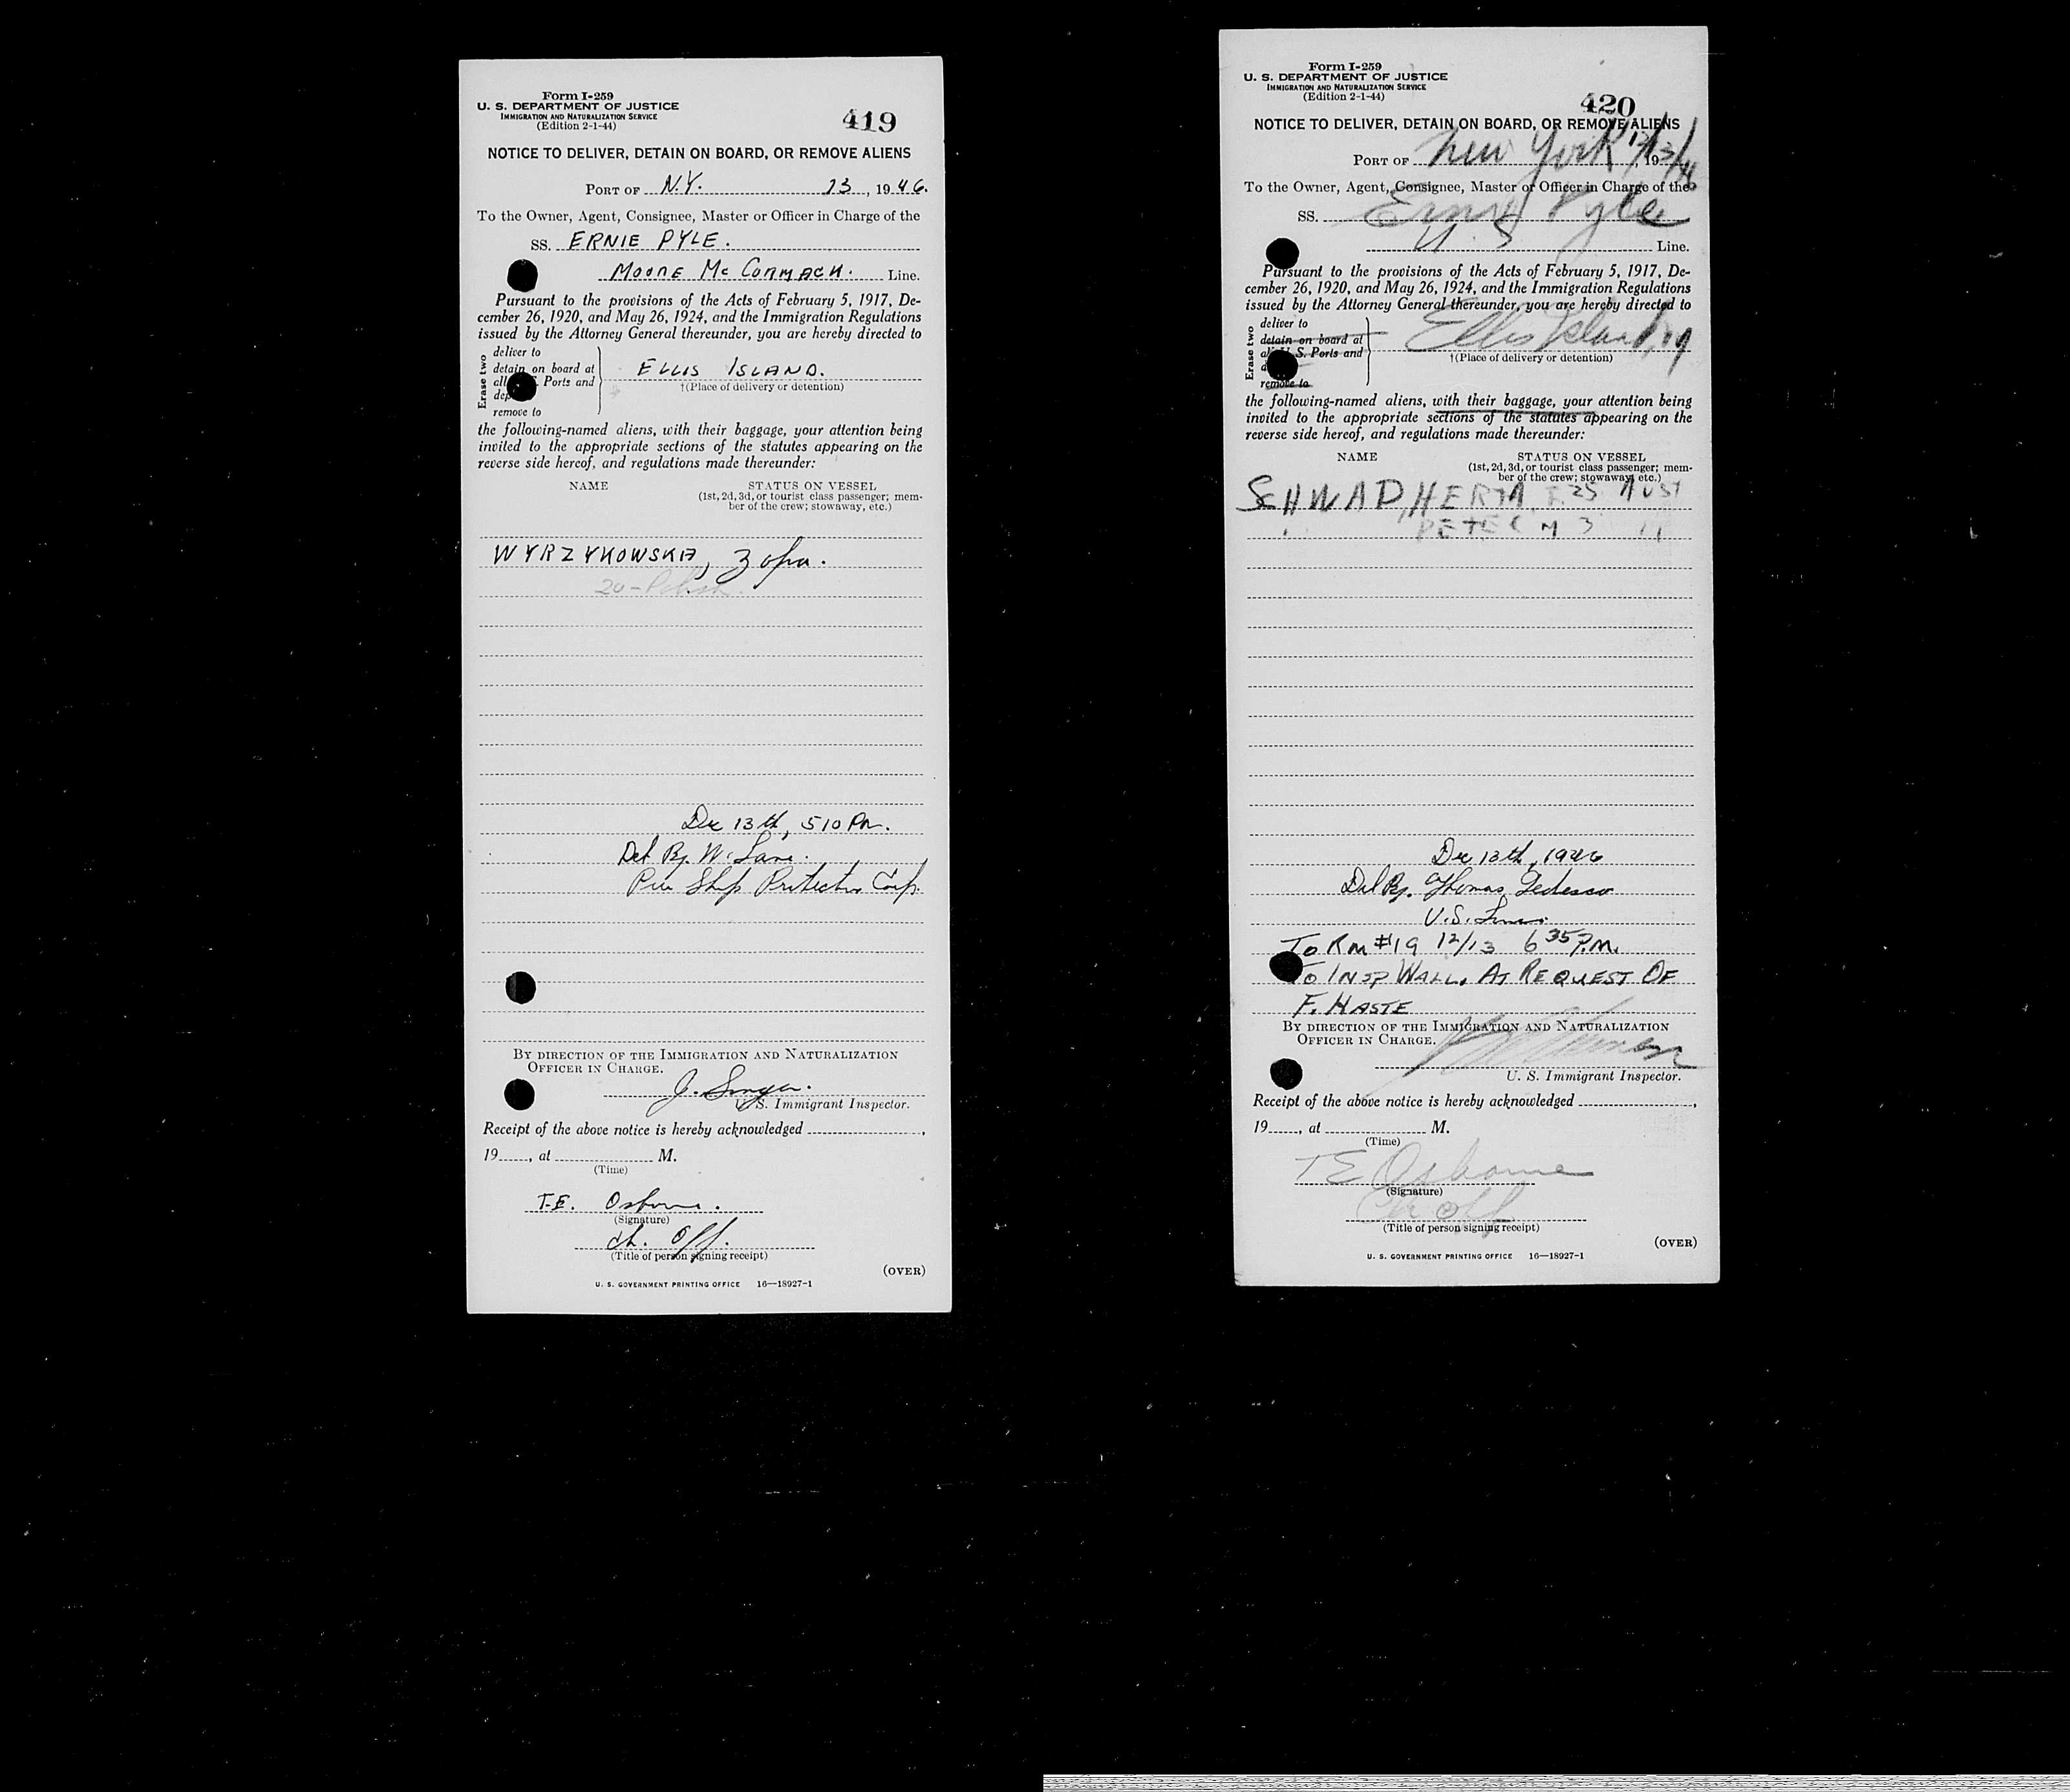 Form I-259
U. S. DEPARTMENT OF JUSTICE
IMMIGRATION AND NATURALIZATION SERVICE
(Edition 2-1-44)
419
NOTICE TO DELIVER, DETAIN ON BOARD, OR REMOVE ALIENS
PORT OF N.Y. 13, 1946.
To the Owner, Agent, Consignee, Master or Officer in Charge of the
SS. ERNIE PYLE.
MOORE McCORMACK. Line.
Pursuant to the provisions of the Acts of February 5, 1917, De-
cember 26, 1920, and May 26, 1924, and the Immigration Regulations
issued by the Attorney General thereunder, you are hereby directed to
Erase two
deliver to
detain on board at
all Ports and
dep
remove to
ELLIS ISLAND.
†(Place of delivery or detention)
the following-named aliens, with their baggage, your attention being
invited to the appropriate sections of the statutes appearing on the
reverse side hereof, and regulations made thereunder:
NAME
STATUS ON VESSEL
(1st, 2d, 3d, or tourist class passenger; mem-
ber of the crew; stowaway, etc.)
WYRZYKOWSKA, Zofia.
20-Polish.
Dec 13th, 510 PM.
Del By. W. Lane.
Pier Ship Protection Corp.
BY DIRECTION OF THE IMMIGRATION AND NATURALIZATION
OFFICER IN CHARGE.
J.
U. S. Immigrant Inspector.
Receipt of the above notice is hereby acknowledged
19, at M.
(Time)
T.E. Osborne.
(Signature)
Ch. Off.
(Title of person signing receipt)
(OVER)
U. S. GOVERNMENT PRINTING OFFICE 16—18927-1
Form I-259
U. S. DEPARTMENT OF JUSTICE
IMMIGRATION AND NATURALIZATION SERVICE
(Edition 2-1-44)
420
NOTICE TO DELIVER, DETAIN ON BOARD, OR REMOVE ALIENS
PORT OF New York 12/13/46, 19
To the Owner, Agent, Consignee, Master or Officer in Charge of the
SS. Ernie Pyle
U.S Line.
Pursuant to the provisions of the Acts of February 5, 1917, De-
cember 26, 1920, and May 26, 1924, and the Immigration Regulations
issued by the Attorney General thereunder, you are hereby directed to
Erase two
deliver to
detain on board at
all U. S. Ports and
remove to
Ellis Island, NY
†(Place of delivery or detention)
the following-named aliens, with their baggage, your attention being
invited to the appropriate sections of the statutes appearing on the
reverse side hereof, and regulations made thereunder:
NAME
STATUS ON VESSEL
(1st, 2d, 3d, or tourist class passenger; mem-
ber of the crew; stowaway, etc.)
SCHWAD, HERTA F. 25 AUST
" PETER M 3 "
Dec 13th, 1946
Del By. Thomas Tedesco
U.S. Lines.
TO RM #19 12/13 6 35 P.M.
TO INSP WALL. AT REQUEST OF
F. HASTE
BY DIRECTION OF THE IMMIGRATION AND NATURALIZATION
OFFICER IN CHARGE.
U. S. Immigrant Inspector.
Receipt of the above notice is hereby acknowledged
19, at M.
(Time)
TE Osborne
(Signature)
Ch Off
(Title of person signing receipt)
(OVER)
U. S. GOVERNMENT PRINTING OFFICE 16—18927-1